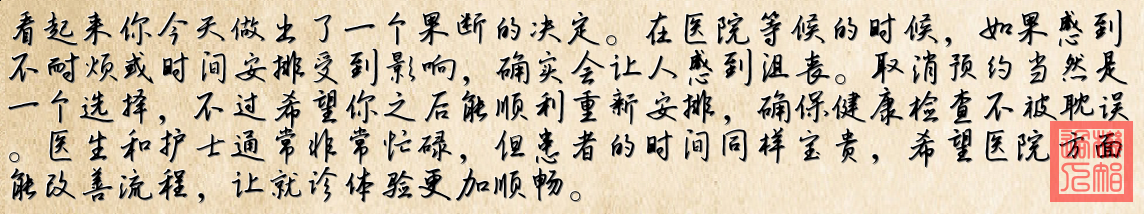 看起来你今天做出了一个果断的决定。在医院等候的时候，如果感到
不耐烦或时间安排受到影响，确实会让人感到沮丧。取消预约当然是
一个选择，不过希望你之后能顺利重新安排，确保健康检查不被耽误
。医生和护士通常非常忙碌，但患者的时间同样宝贵，希望医院方面
能改善流程，让就诊体验更加顺畅。